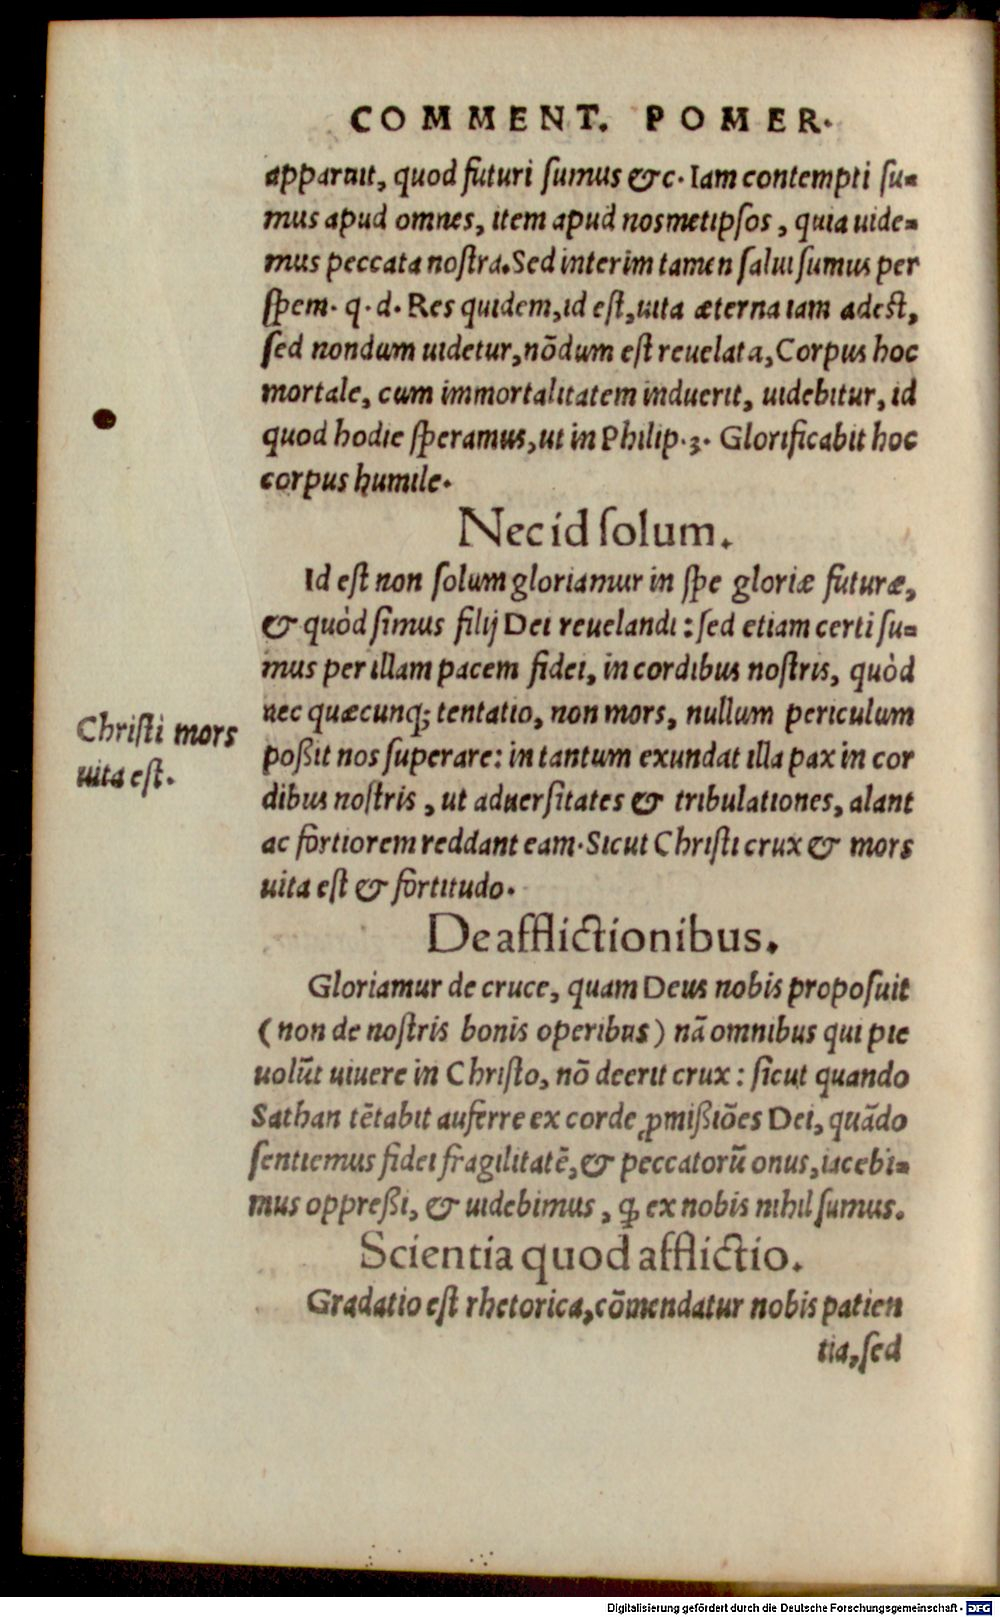 COMMENT. POMER.
apparuit, quod futuri ſumus &c. Iam contempti ſu-
mus apud omnes, item apud noſmetipſos, quia uide-
mus peccata noſtra. Sed interim tamen ſalui ſumus per
ſpem. q. d. Res quidem, id eſt, uita æterna iam adeſt,
ſed nondum uidetur, nõdum eſt reuelata, Corpus hoc
mortale, cum immortalitatem induerit, uidebitur, id
quod hodie ſperamus, ut in Philip. 3. Glorificabit hoc
corpus humile.
Nec id ſolum.
Id eſt non ſolum gloriamur in ſpe gloriæ futuræ,
& quòd ſimus filij Dei reuelandi: ſed etiam certi ſu-
mus per illam pacem fidei, in cordibus noſtris, quòd
nec quæcunq; tentatio, non mors, nullum periculum
poßit nos ſuperare: in tantum exundat illa pax in cor
dibus noſtris, ut aduerſitates & tribulationes, alant
ac fortiorem reddant eam. Sicut Chriſti crux & mors
uita eſt & fortitudo.
Chriſti mors
uita eſt.
De afflictionibus.
Gloriamur de cruce, quam Deus nobis propoſuit
(non de noſtris bonis operibus) nã omnibus qui pie
uolũt uiuere in Chriſto, nõ deerit crux: ſicut quando
Sathan tẽtabit auferre ex corde ꝓmißiões Dei, quãdo
ſentiemus fidei fragilitatẽ, & peccatorũ onus, iacebi-
mus oppreßi, & uidebimus, ꝙ ex nobis nihil ſumus.
Scientia quod afflictio.
Gradatio eſt rhetorica, cõmendatur nobis patien
tia, ſed
Digitalisierung gefördert durch die Deutsche Forschungsgemeinschaft - DFG